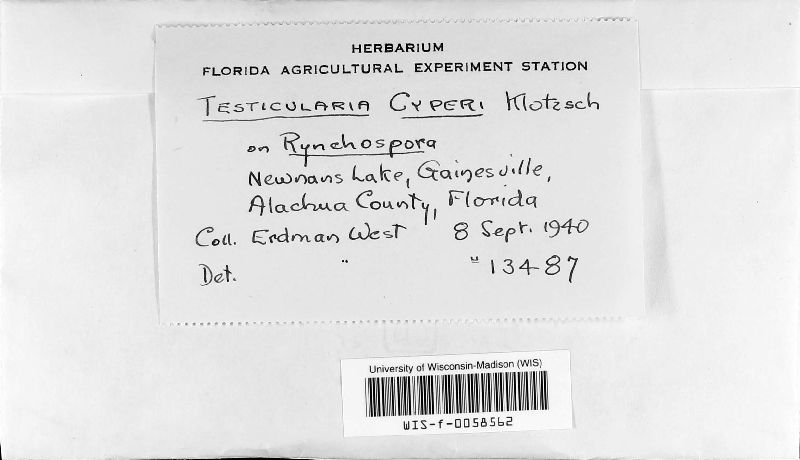 HERBARIUM
FLORIDA AGRICULTURAL EXPERIMENT STATION
TESTICULARIA CYPERI Klotzsch
on Rynchospora
Newnans Lake, Gainesville,
Alachua County, Florida
Coll. Erdman West 8 Sept. 1940
Det. " " 13487
University of Wisconsin-Madison (WIS)
WIS-f-0058562